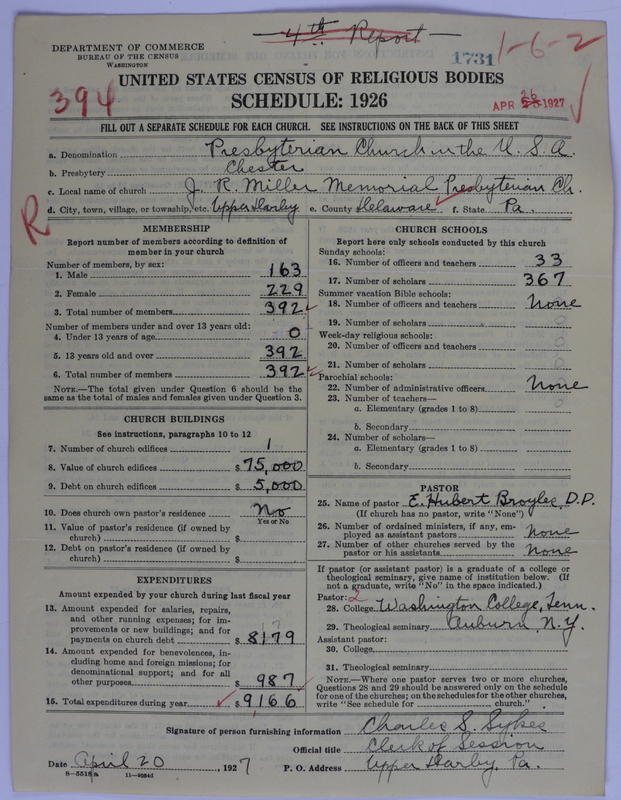 4th Report
DEPARTMENT OF COMMERCE
BUREAU OF THE CENSUS
WASHINGTON
1731
1-6-2
UNITED STATES CENSUS OF RELIGIOUS BODIES
394
SCHEDULE: 1926
APR 26 1927
FILL OUT A SEPARATE SCHEDULE FOR EACH CHURCH. SEE INSTRUCTIONS ON THE BACK OF THIS SHEET
a. Denomination Presbyterian Church in the U. S. A.
b. Presbytery Chester
c. Local name of church J. R. Miller Memorial Presbyterian Ch.
R
d. City, town, village, or township, etc. Upper Darby e. County Delaware f. State Pa.
MEMBERSHIP
Report number of members according to definition of
member in your church
Number of members, by sex:
1. Male 163
2. Female 229
3. Total number of members 392
Number of members under and over 13 years old:
4. Under 13 years of age 0
5. 13 years old and over 392
6. Total number of members 392
NOTE.—The total given under Question 6 should be the
same as the total of males and females given under Question 3.
CHURCH BUILDINGS
See instructions, paragraphs 10 to 12
7. Number of church edifices 1
8. Value of church edifices $75,000
9. Debt on church edifices $5,000
10. Does church own pastor's residence No
Yes or No
11. Value of pastor's residence (if owned by
church) $
12. Debt on pastor's residence (if owned by
church) $
EXPENDITURES
Amount expended by your church during last fiscal year
13. Amount expended for salaries, repairs,
and other running expenses; for im-
provements or new buildings; and for
payments on church debt $8179
14. Amount expended for benevolences, in-
cluding home and foreign missions; for
denominational support; and for all
other purposes $987
15. Total expenditures during year $9166
CHURCH SCHOOLS
Report here only schools conducted by this church
Sunday schools:
16. Number of officers and teachers 33
17. Number of scholars 367
Summer vacation Bible schools:
18. Number of officers and teachers None
19. Number of scholars
Week-day religious schools:
20. Number of officers and teachers
21. Number of scholars
Parochial schools:
22. Number of administrative officers None
23. Number of teachers—
a. Elementary (grades 1 to 8)
b. Secondary
24. Number of scholars—
a. Elementary (grades 1 to 8)
b. Secondary
PASTOR
25. Name of pastor E. Hubert Broyles, D.D.
(If church has no pastor, write "None")
26. Number of ordained ministers, if any, em-
ployed as assistant pastors none
27. Number of other churches served by the
pastor or his assistants none
If pastor (or assistant pastor) is a graduate of a college or
theological seminary, give name of institution below. (If
not a graduate, write "No" in the space indicated.)
Pastor: 2
28. College Washington College, Tenn.
29. Theological seminary Auburn, N.Y.
Assistant pastor:
30. College
31. Theological seminary
NOTE.—Where one pastor serves two or more churches,
Questions 28 and 29 should be answered only on the schedule
for one of the churches; on the schedules for the other churches,
write "See schedule for church."
Signature of person furnishing information Charles S. Sykes
Official title Clerk of Session
Date April 20, 1927 P. O. Address Upper Darby, Pa.
8-5518a 11-9254d